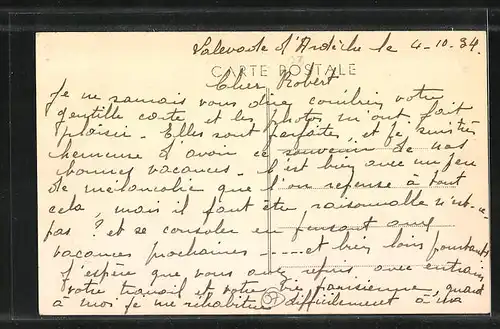 Lalevade d'Ardèche le 4-10.34.
CARTE POSTALE
Cher Robert
Je ne saurais vous dire combien votre
gentille carte et les photos m'ont fait
plaisir. Elles sont parfaites, et je suis très
heureuse d'avoir ce souvenir de nos
bonnes vacances. C'est bien avec un peu
de mélancolie que l'on repense à tout
cela, mais il faut être raisonnable n'est-ce
pas? et se consoler en pensant aux
vacances prochaines ..... et bien loin pourtant
J'espère que vous avez repris avec entrain
votre travail et votre vie parisienne, quand
à moi je me réhabitue difficilement à ma